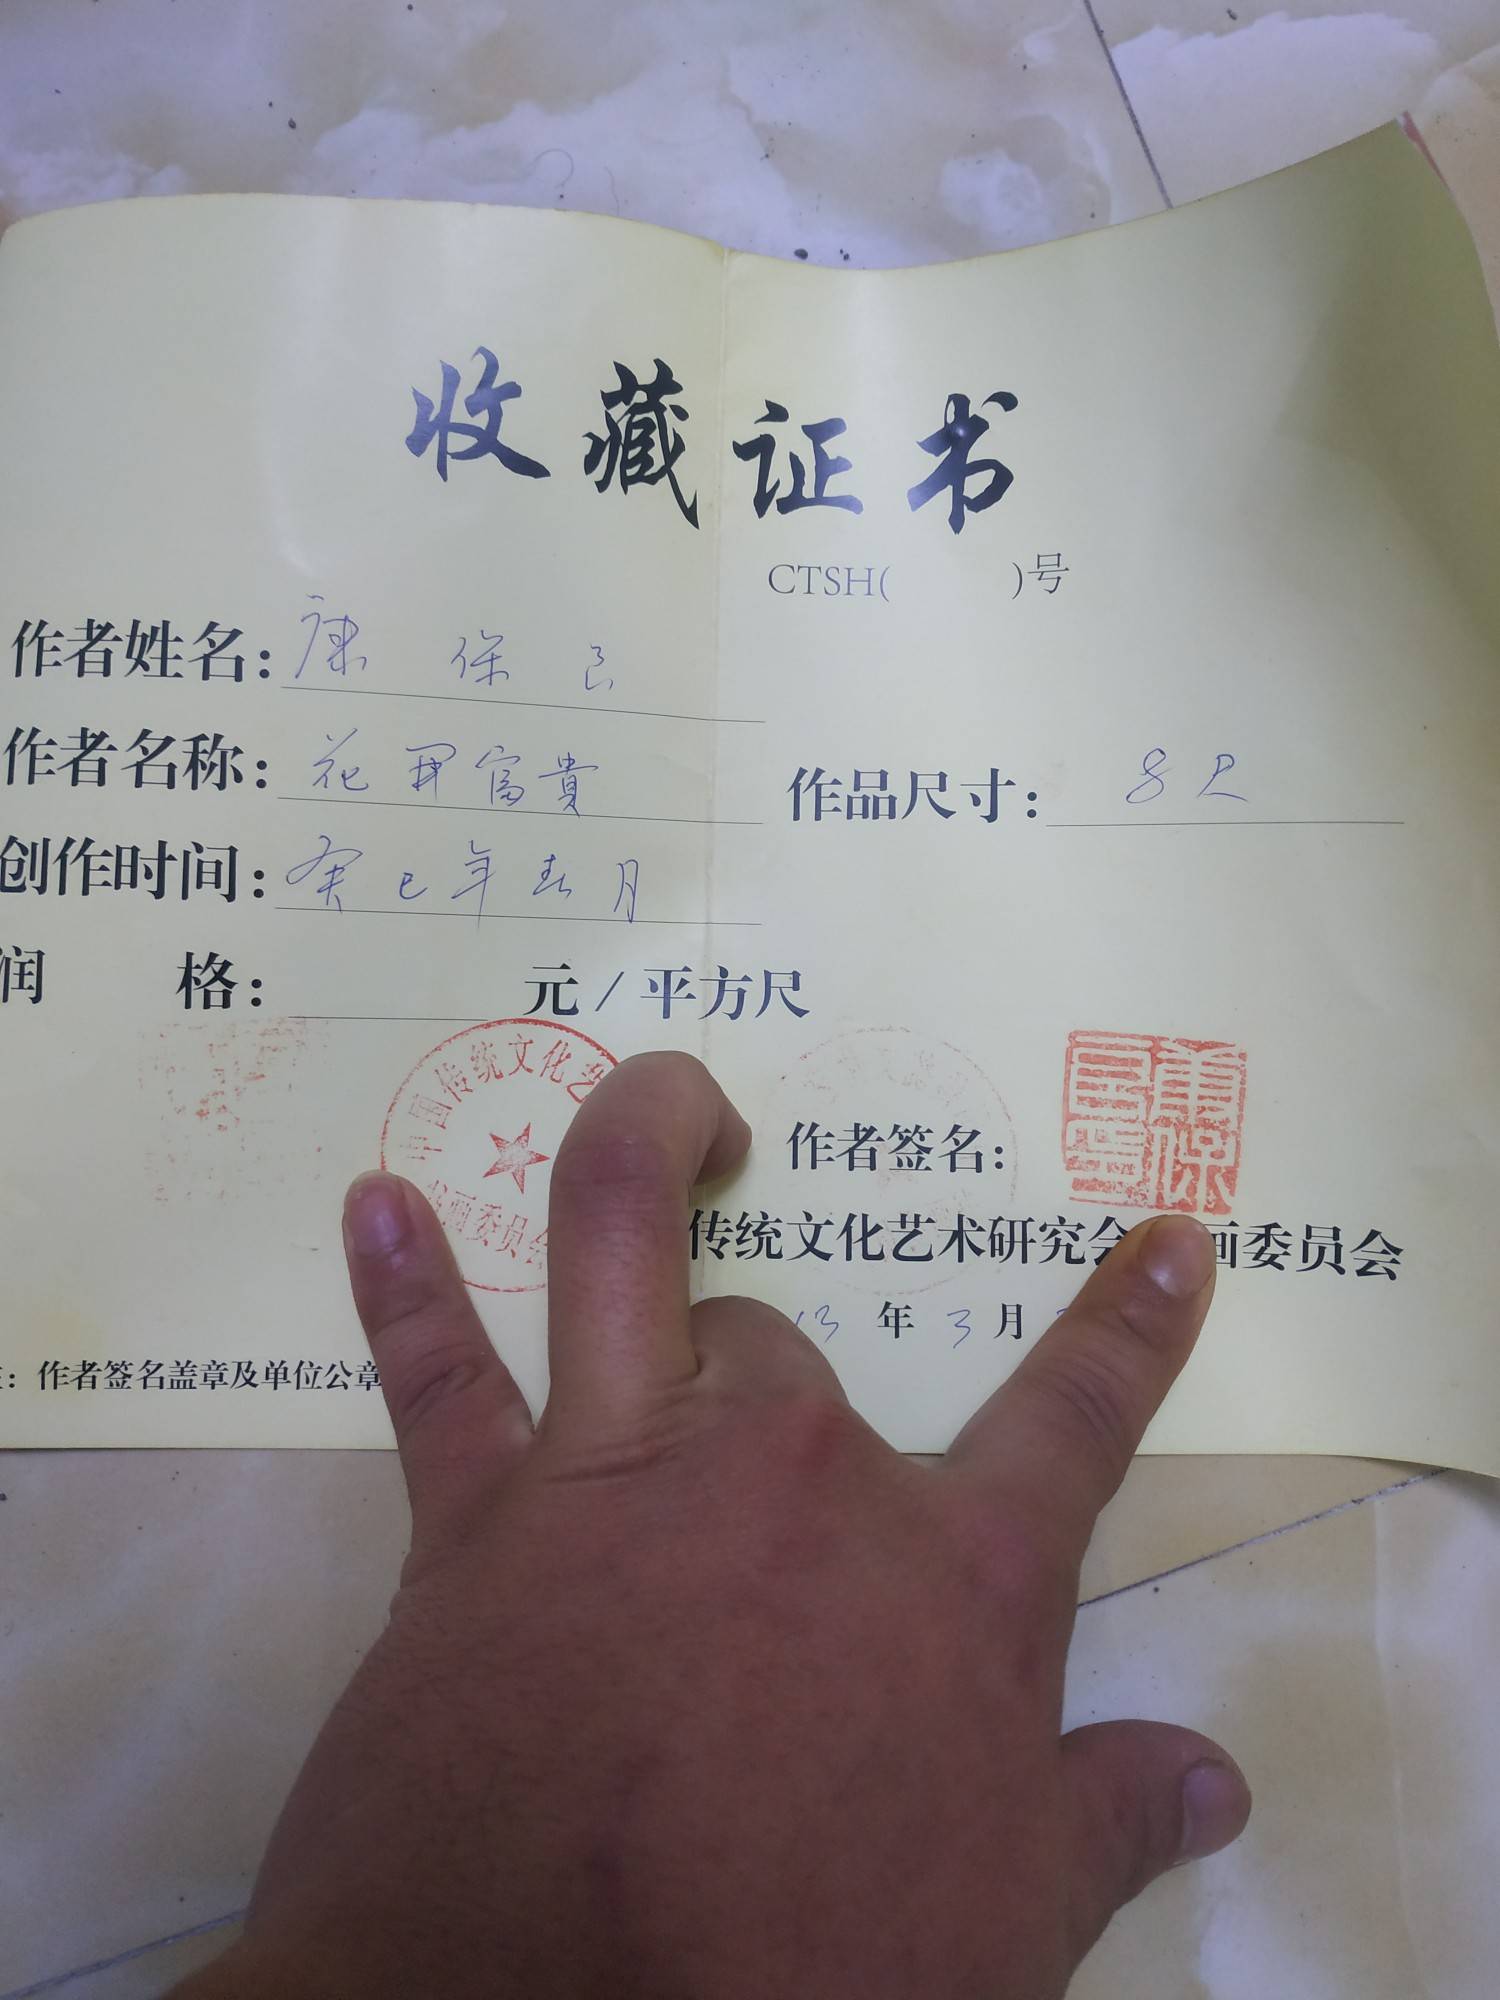 收藏证书
CTSH( )号
作者姓名: 康保良
作者名称: 花开富貴
作品尺寸: 8尺
创作时间: 癸巳年春月
润 格: 元/平方尺
中国传统文化艺
书画委员会
作者签名:
传统文化艺术研究会 画委员会
13 年 3 月
: 作者签名盖章及单位公章